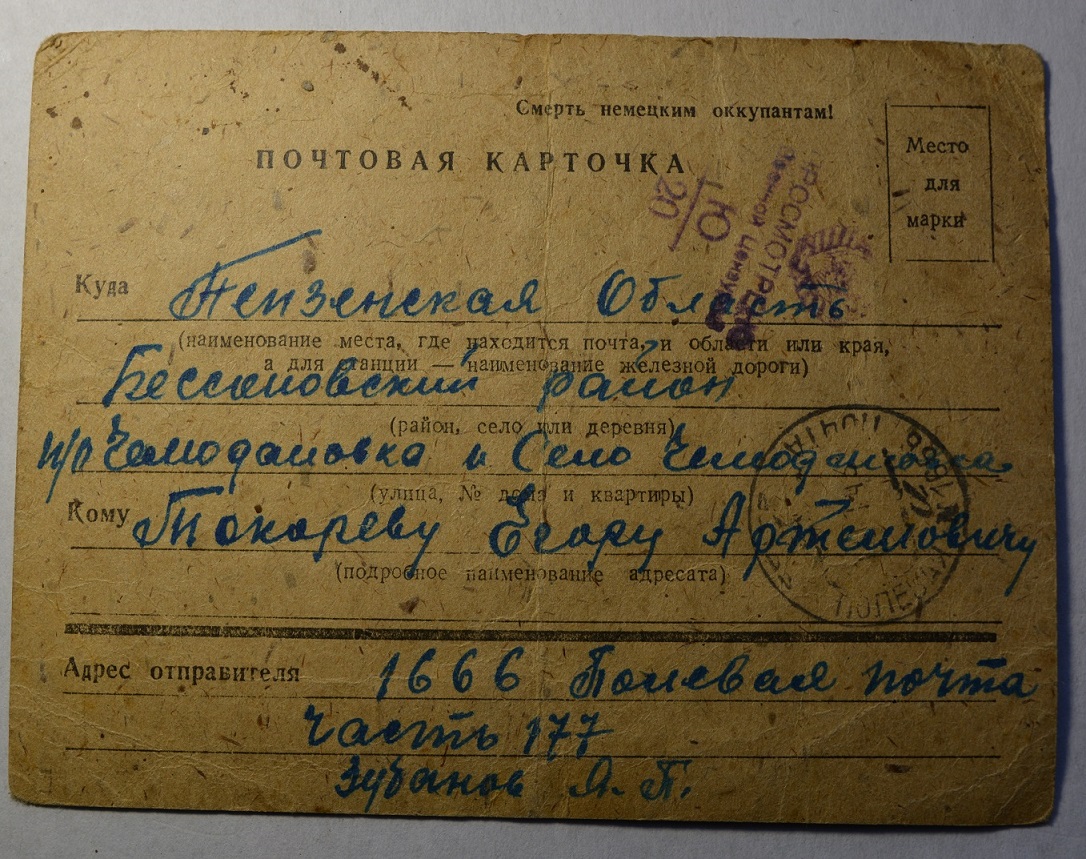 Смерть немецким оккупантам!
ПОЧТОВАЯ КАРТОЧКА
Место
для
марки
Ю
20
ПРОСМОТРЕНО
Военной Цензурой
Куда Пензенская Область
(наименование места, где находится почта, и области или края,
а для станции — наименование железной дороги)
Бессоновский район
(район, село или деревня)
п/о Чемодановка и Село Чемодановка
(улица, № дома и квартиры)
Кому Токареву Егору Артемовичу
(подробное наименование адресата)
ПОЧТА
ПОЛЕВАЯ
Адрес отправителя 1666 Полевая почта
часть 177
Зубанов Я. П.